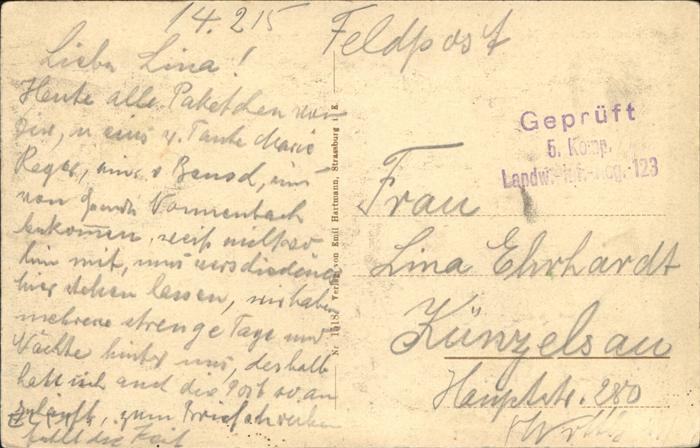 14.2.15
Liebe Lina!
Heute alle Paketchen von
Dir, u eins v. Tante Marie
Reger, eins v
von Vonnenbach
bekommen, weiß nicht wo
hin mit,
hier stehen lassen, wir haben
mehrere strenge Tage und
Nächte hinter uns, deshalb
hat sich auch die Post so an
zum Briefschreiben
fehlt die Zeit
Nr. Verlag von Emil Hartmann, Strassburg i. E.
Feldpost
Geprüft
5. Komp.
Landw.-Inf.-Reg. 123
Frau
Lina Ehrhardt
Künzelsau
Hauptstr. 280